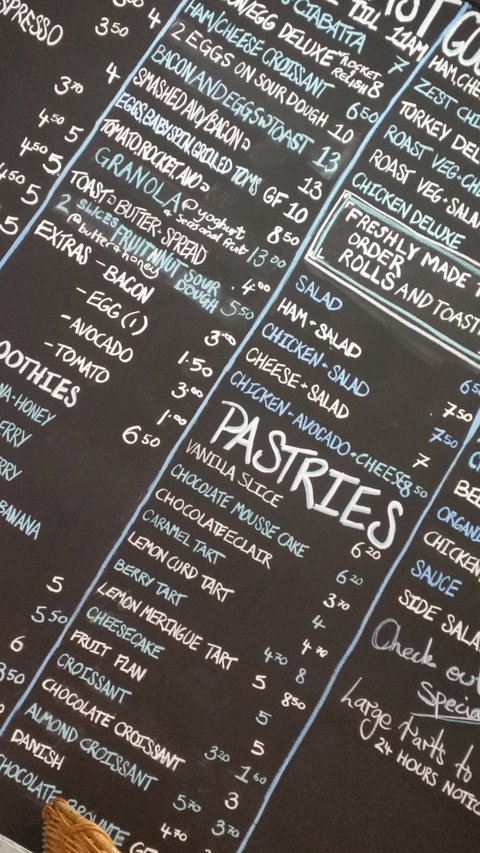 ESPRESSO
3.50 4
3.50
4
3.70
4.50 5
4.50 5
4.50 5
5
OOTHIES
NA-HONEY
ERRY
RRY
BANANA
6.50
5
5.50
6
3.50
CIABATTA 7
EGG DELUXE ROCKET RELISH 8
HAM/CHEESE CROISSANT 6.50
2 EGGS ON SOUR DOUGH 10
BACON AND EGGS TOAST 13
SMASHED AVO/BACON 13
EGGS, BABY SPIN, GRILLED TOMS GF 10
TOMATO ROCKET AVO 8.50
GRANOLA @ yoghurt & seasonal fruit 13.00
TOAST - BUTTER - SPREAD 4.00
2 SLICES FRUIT N NUT SOUR DOUGH 5.50
@ butter & honey
EXTRAS - BACON 3.00
- EGG (1) 1.50
- AVOCADO 3.00
- TOMATO 1.00
PASTRIES
VANILLA SLICE 6.20
CHOCOLATE MOUSSE CAKE 6.20
CHOCOLATE ECLAIR 3.70
CARAMEL TART 4
LEMON CURD TART 4.70
BERRY TART 4.70
LEMON MERINGUE TART 8
CHEESECAKE 5
FRUIT FLAN 8.50
CROISSANT 5
CHOCOLATE CROISSANT 5
ALMOND CROISSANT
DANISH
CHOCOLATE BROWNIE GF
3.20
1.60
3
5.70
3.70
4.70
TILL 11AM
HAM, CHE
ZEST CHI
TURKEY DEL
ROAST VEG - CH
ROAST VEG - SALA
CHICKEN DELUXE
FRESHLY MADE T
ORDER
ROLLS AND TOAST
SALAD
HAM - SALAD 6.5
CHICKEN - SALAD 7.50
CHEESE - SALAD 7.50
CHICKEN - AVOCADO - CHEESE 8.50
7
BE
ORGANI
CHICKEN
SAUCE
SIDE SALA
Check out
Specia
Large Tarts to
24 HOURS NOTIC